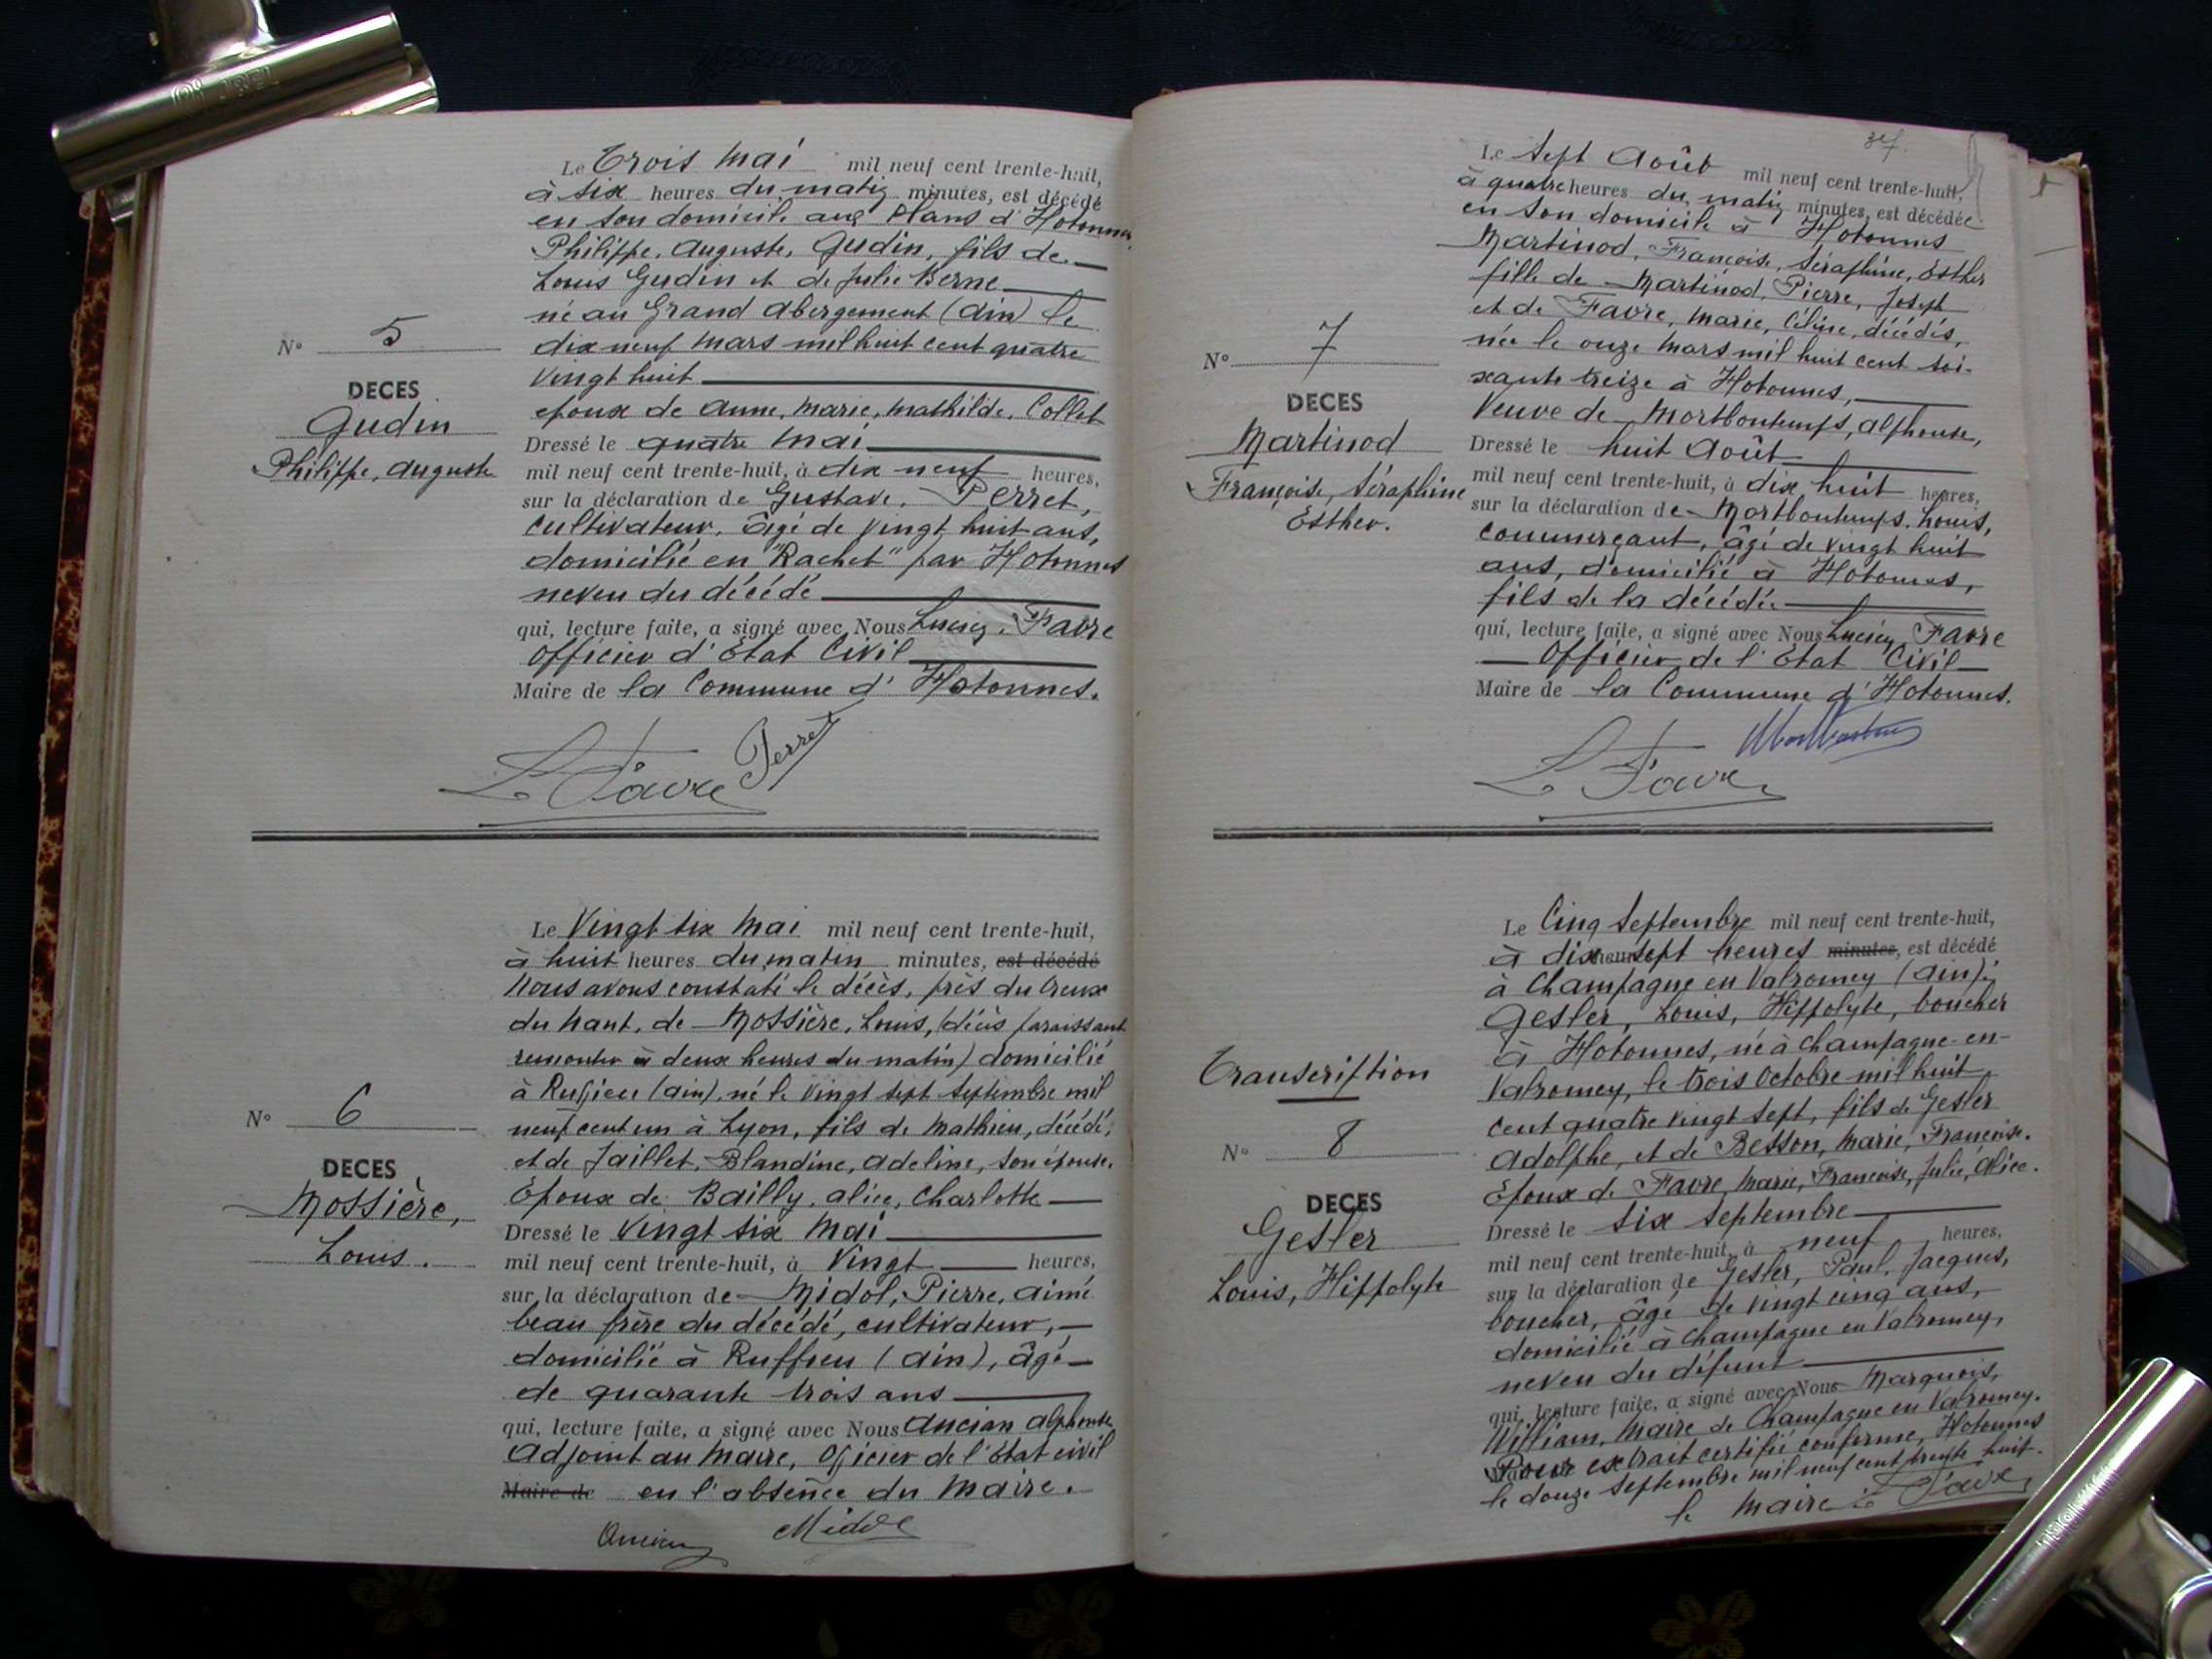 Le Trois Mai mil neuf cent trente-huit,
à six heures du matin minutes, est décédé
en son domicile aux Plans d'Hotonnes
Philippe, Auguste, Gudin, fils de
Louis Gudin et de Julie Berne
né au Grand Abergement (Ain) le
dix neuf Mars mil huit cent quatre
vingt huit
époux de Anne, Marie, Mathilde, Collet
N° 5
DECES
Gudin
Philippe, Auguste
Dressé le quatre Mai
mil neuf cent trente-huit, à dix neuf heures,
sur la déclaration de Gustave, Perret,
Cultivateur, âgé de vingt huit ans,
domicilié en "Rachet" par Hotonnes
neveu du décédé
qui, lecture faite, a signé avec Nous Lucien, Favre
Officier d'Etat Civil
Maire de la Commune d'Hotonnes.
L. Favre Perret
Le Vingt six Mai mil neuf cent trente-huit,
à huit heures du matin minutes, est décédé
Nous avons constaté le décès, près du Creux
du haut, de Mossière, Louis, (décès paraissant
remonter à deux heures du matin) domicilié
à Ruffieu (Ain), né le vingt sept septembre mil
neuf cent un à Lyon, fils de Mathieu, décédé,
et de Jaillet, Blandine, Adeline, son épouse.
Epoux de Bailly, Alice, Charlotte
N° 6
DECES
Mossière,
Louis.
Dressé le vingt six Mai
mil neuf cent trente-huit, à Vingt heures,
sur la déclaration de Midol, Pierre, Aimé
beau frère du décédé, cultivateur,
domicilié à Ruffieu (Ain), âgé
de quarante trois ans
qui, lecture faite, a signé avec Nous Ancian Alphonse
Adjoint au Maire, Officier de l'Etat civil
Maire de en l'absence du Maire.
Ancian Midol
Le Sept Août mil neuf cent trente-huit,
à quatre heures du matin minutes, est décédée
en son domicile à Hotonnes
Martinod, Françoise, Séraphine, Esther
fille de Martinod, Pierre, Joseph
et de Favre, Marie, Céline, décédés,
née le onze Mars mil huit cent soi-
xante treize à Hotonnes,
Veuve de Mortbontemps, Alphonse,
N° 7
DECES
Martinod
Françoise, Séraphine
Esther.
Dressé le huit Août
mil neuf cent trente-huit, à dix huit heures,
sur la déclaration de Mortbontemps, Louis,
commerçant, âgé de vingt huit
ans, domicilié à Hotonnes,
fils de la décédée
qui, lecture faite, a signé avec Nous Lucien, Favre
Officier de l'Etat Civil
Maire de la Commune d'Hotonnes.
L. Favre
Le Cinq Septembre mil neuf cent trente-huit,
à dix sept heures minutes, est décédé
à Champagne en Valromey (Ain).
Gesler, Louis, Hippolyte, boucher
à Hotonnes, né à Champagne-en-
Valromey, le trois Octobre mil huit
cent quatre vingt sept, fils de Gesler
Adolphe, et de Besson, Marie, Françoise.
Epoux de Favre, Marie, Françoise, Julie, Alice.
Transcription
N° 8
DECES
Gesler
Louis, Hippolyte
Dressé le six septembre
mil neuf cent trente-huit, à neuf heures,
sur la déclaration de Gesler, Paul, Jacques,
boucher, âgé de vingt cinq ans,
domicilié à Champagne en Valromey,
neveu du défunt
qui, lecture faite, a signé avec Nous Marquois,
William, Maire de Champagne en Valromey.
Pour extrait certifié conforme, Hotonnes
le douze septembre mil neuf cent trente huit.
le Maire L. Favre